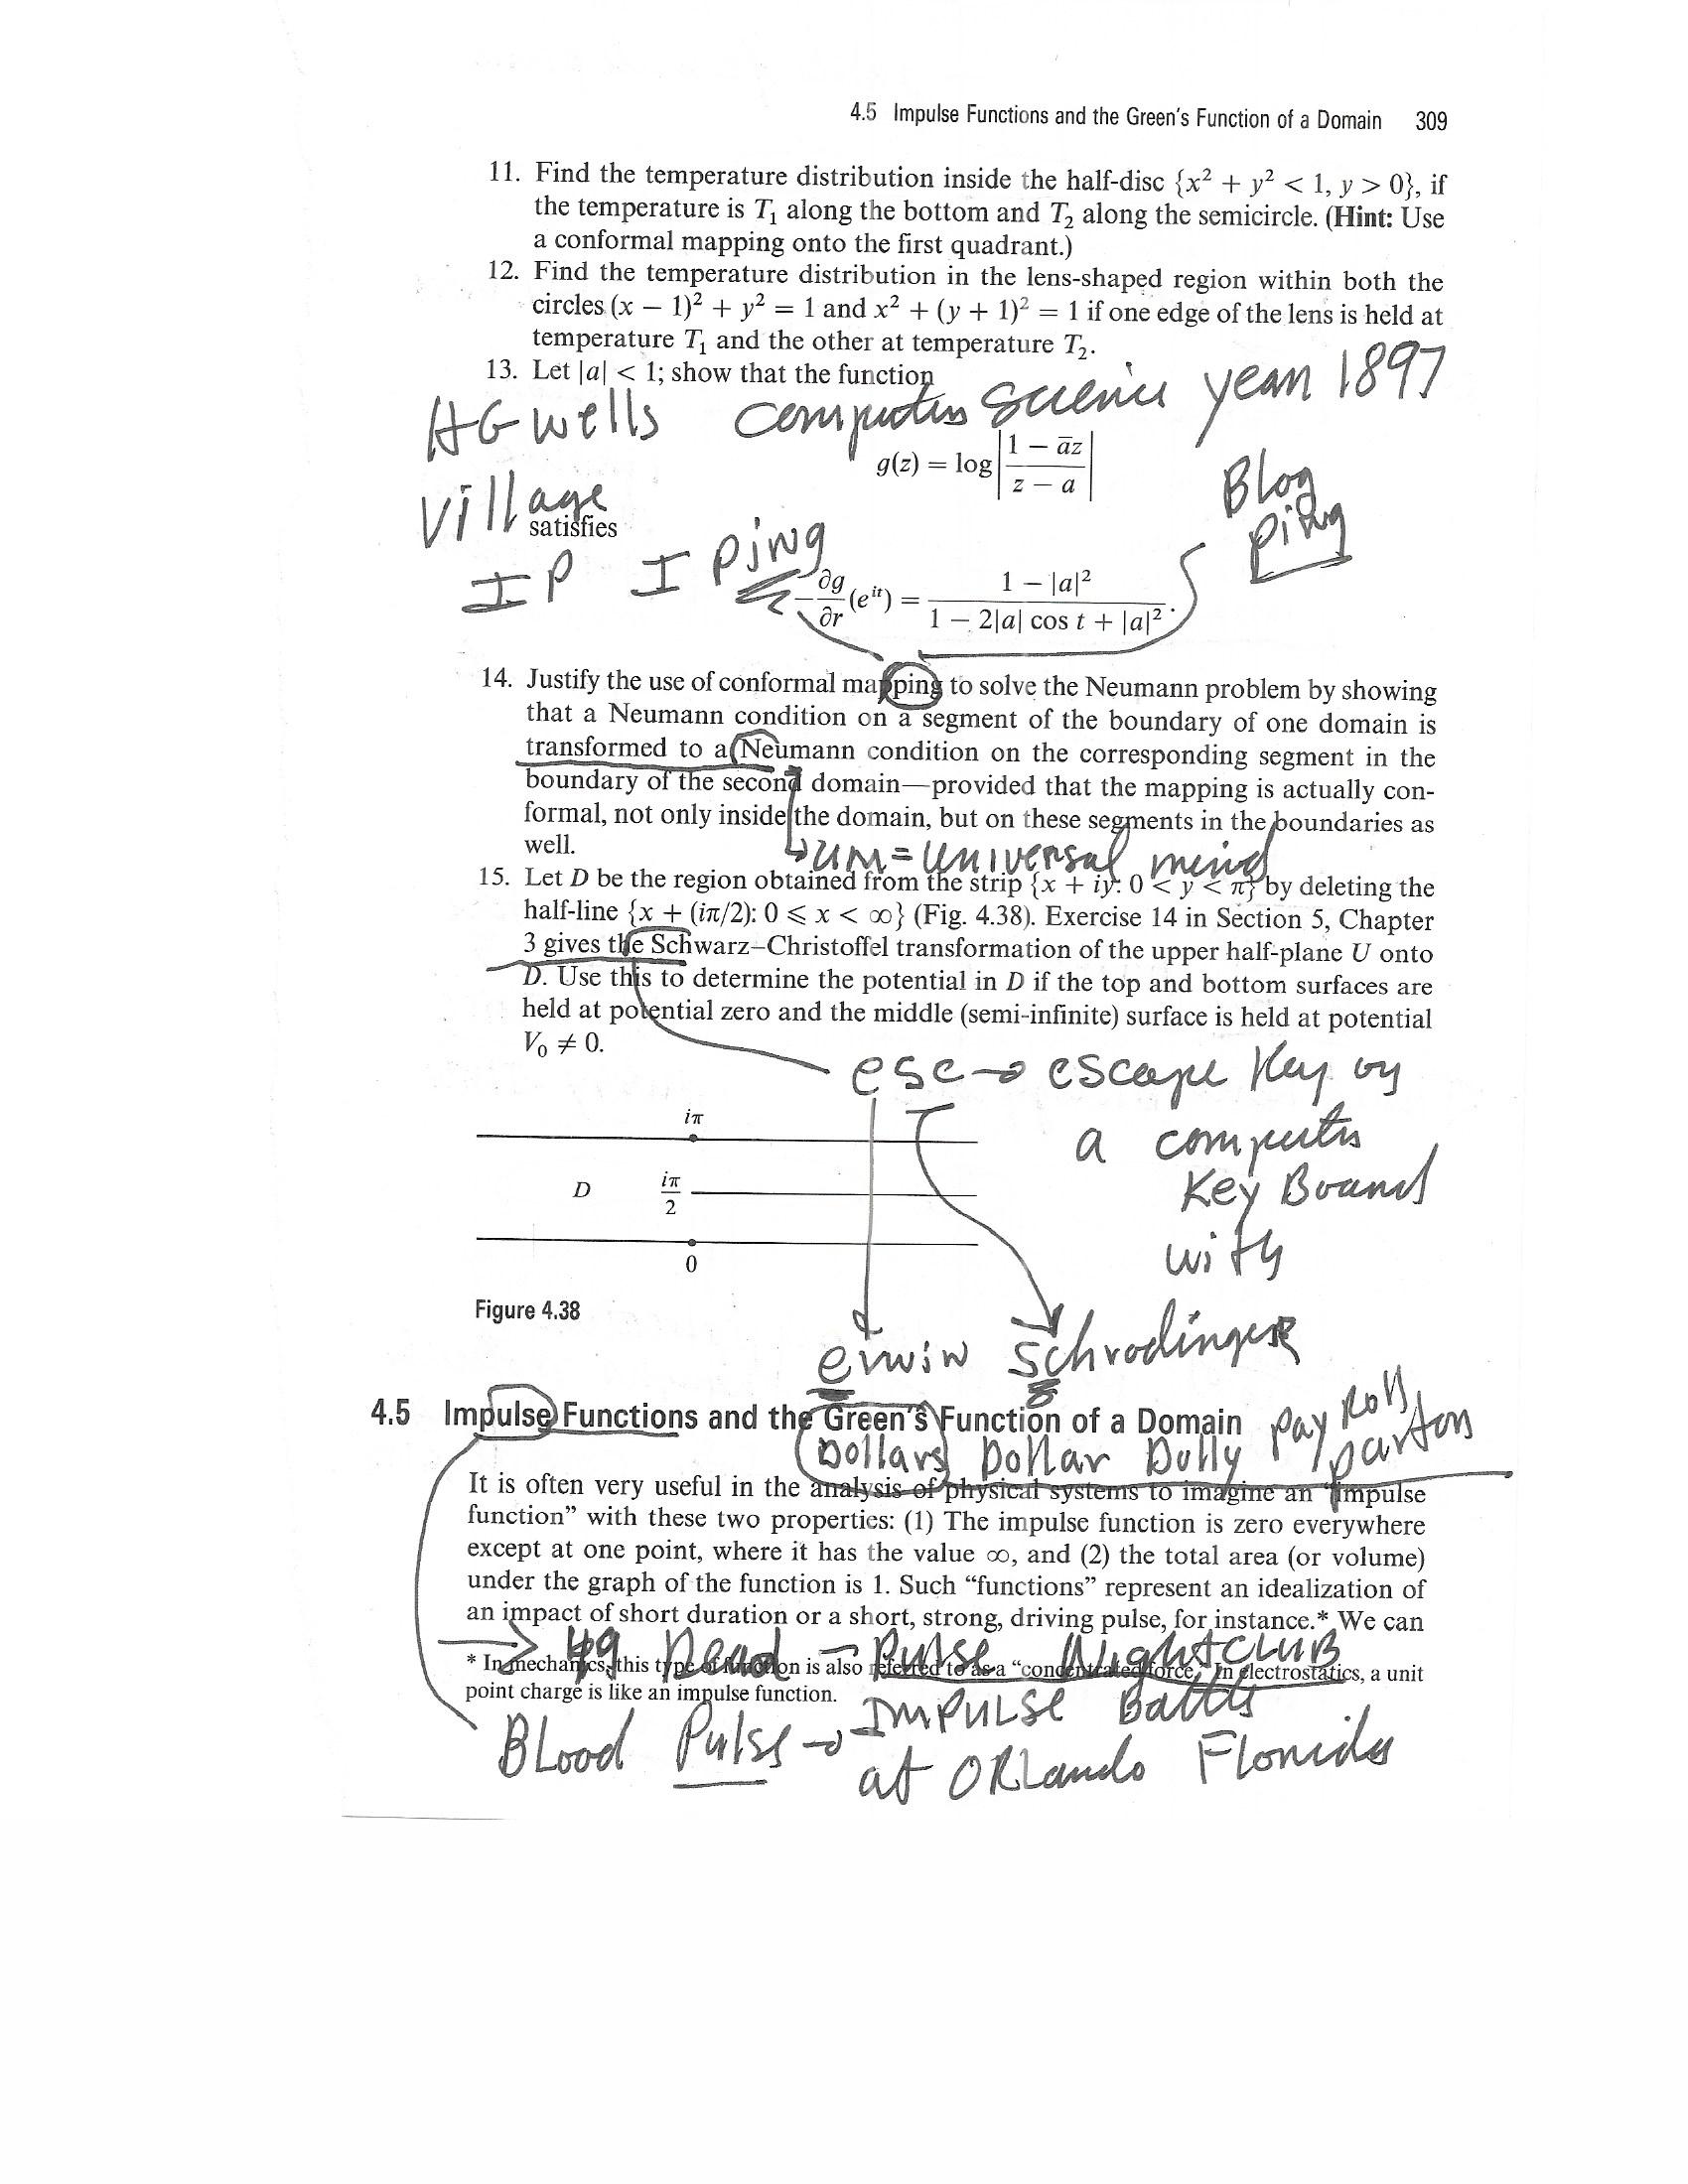 4.5 Impulse Functions and the Green's Function of a Domain 309
11. Find the temperature distribution inside the half-disc {x² + y² < 1, y > 0}, if
the temperature is T₁ along the bottom and T₂ along the semicircle. (Hint: Use
a conformal mapping onto the first quadrant.)
12. Find the temperature distribution in the lens-shaped region within both the
circles (x − 1)² + y² = 1 and x² + (y + 1)² = 1 if one edge of the lens is held at
temperature T₁ and the other at temperature T₂.
13. Let |a| < 1; show that the function
HG Wells Computer Science year 1897
g(z) = log |(1 − āz)/(z − a)|
Blog
Village
Ping
satisfies
IP I Ping
−∂g/∂r (e^{it}) = (1 − |a|²)/(1 − 2|a| cos t + |a|²).
14. Justify the use of conformal mapping to solve the Neumann problem by showing
that a Neumann condition on a segment of the boundary of one domain is
transformed to a Neumann condition on the corresponding segment in the
boundary of the second domain—provided that the mapping is actually con-
formal, not only inside the domain, but on these segments in the boundaries as
well.
um = universal mind
15. Let D be the region obtained from the strip {x + iy: 0 < y < π} by deleting the
half-line {x + (iπ/2): 0 ⩽ x < ∞} (Fig. 4.38). Exercise 14 in Section 5, Chapter
3 gives the Schwarz–Christoffel transformation of the upper half-plane U onto
D. Use this to determine the potential in D if the top and bottom surfaces are
held at potential zero and the middle (semi-infinite) surface is held at potential
V₀ ≠ 0.
esc → escape Key on
a computer
Key Board
with
iπ
D iπ/2
0
Figure 4.38
erwin Schrodinger
4.5 Impulse Functions and the Green's Function of a Domain
Pay Roll
Dollars Dollar Dolly parton
It is often very useful in the analysis of physical systems to imagine an “impulse
function” with these two properties: (1) The impulse function is zero everywhere
except at one point, where it has the value ∞, and (2) the total area (or volume)
under the graph of the function is 1. Such “functions” represent an idealization of
an impact of short duration or a short, strong, driving pulse, for instance.* We can
49 Dead → Pulse NightCLUB
* In mechanics, this type of function is also referred to as a “concentrated force.” In electrostatics, a unit
point charge is like an impulse function.
Blood Pulse → IMPULSE Battle
at ORLando Florida